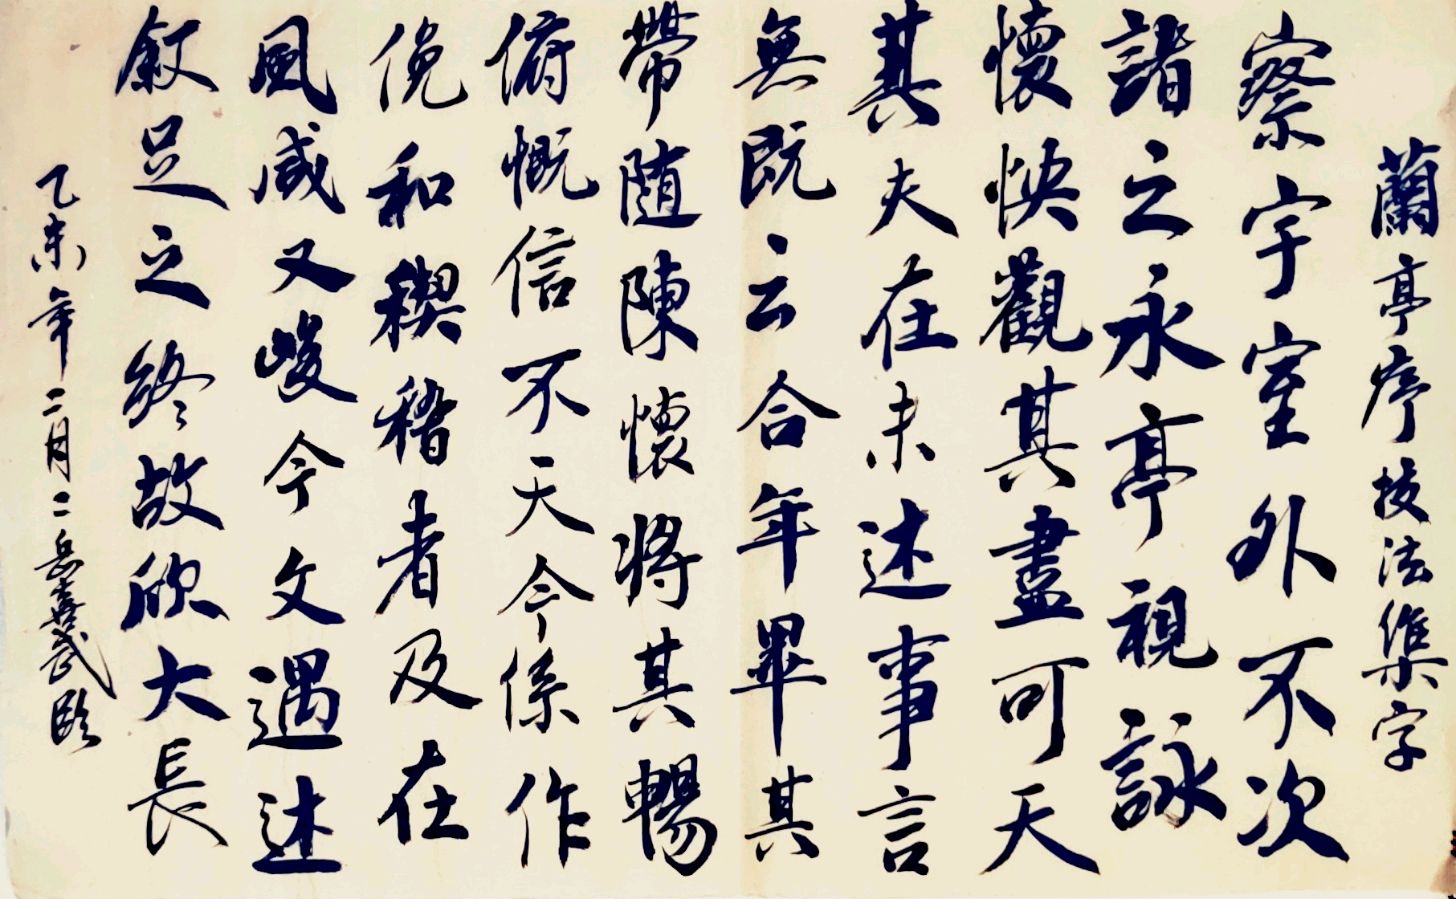 蘭亭序技法集字
察宇室外不次
諸之永亭視詠
懷快觀其盡可天
其夫在未述事言
無既云合年畢其
帶随陳懷將其暢
俯慨信不天今係作
俛和稧稽者及在
風咸又峻今文遇述
叙足之終故欣大長
乙未年二月二岳喜武臨